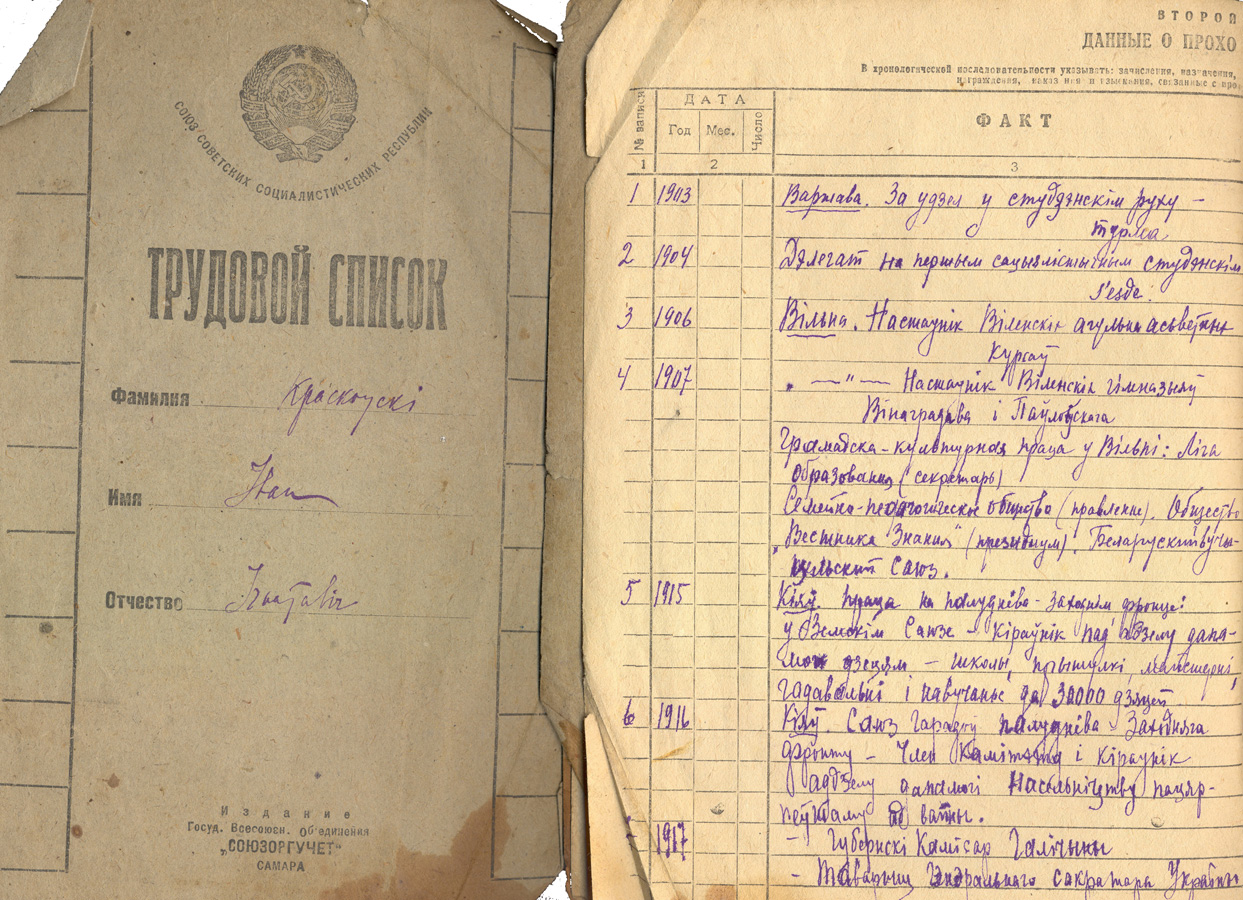 СОЮЗ СОВЕТСКИХ СОЦИАЛИСТИЧЕСКИХ РЕСПУБЛИК
ТРУДОВОЙ СПИСОК
Фамилия Краскоўскі
Имя Іван
Отчество Ігнатавіч
Издание
Госуд. Всесоюзн. Об'единения
„СОЮЗОРГУЧЕТ"
САМАРА
ВТОРОЙ
ДАННЫЕ О ПРОХО
В хронологической последовательности указывать: зачисления, назначения,
награждения, взыскания, связанные с про
№ записи ДАТА ФАКТ
Год Мес. Число
1 2 3
1 1903 Варжава. За удзел у студэнскім руху –
турма
2 1904 Дэлегат на першым сацыялістычным студэнскім
з'ездзе.
3 1906 Вільна. Настаўнік Віленскіх агульна асьветных
Курсаў
4 1907 „ —"— Настаўнік Віленскіх гімназыяў
Вінаградава і Паўлоўскага
Грамадска-культурная праца у Вільні: Ліга
Образования (секретарь)
Семейно-педагогическое общество (правление). Общество
„Вестника Знания" (президиум). Беларускій вучы-
цельский Саюз.
5 1915 Кіяў. праца на палуднёва-заходнім фронце:
у Земскім Саюзе – Кіраўнік пад'адзелу дапа-
могі дзецям – школы, прытулкі, майстэрні,
гадавальні і навучаньс да 30000 дзяцей
6 1916 Кіяў. Саюз Гарадоў палуднёва-Заходняга
фронту – Член Камітэта і Кіраўнік
аддзелу дапамогі Насельніцтву пацяр-
пеўшаму ад вайны.
1917 – Губернскі Камісар Галічыны
– Таварыш Генэральнаго сакратара Украіны